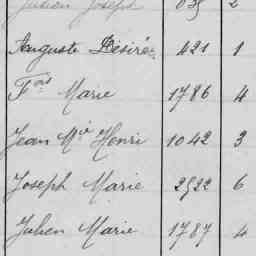 Julien Joseph 035 2
Auguste Désiré 421 1
Fois Marie 1786 4
Jean Mie Henri 1042 3
Joseph Marie 2522 6
Julien Marie 1787 4